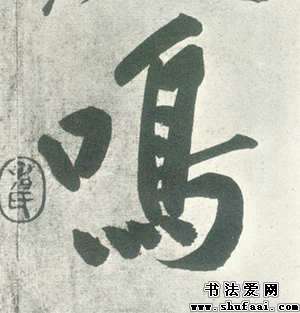 鳴
书法爱网
www.shufaai.com